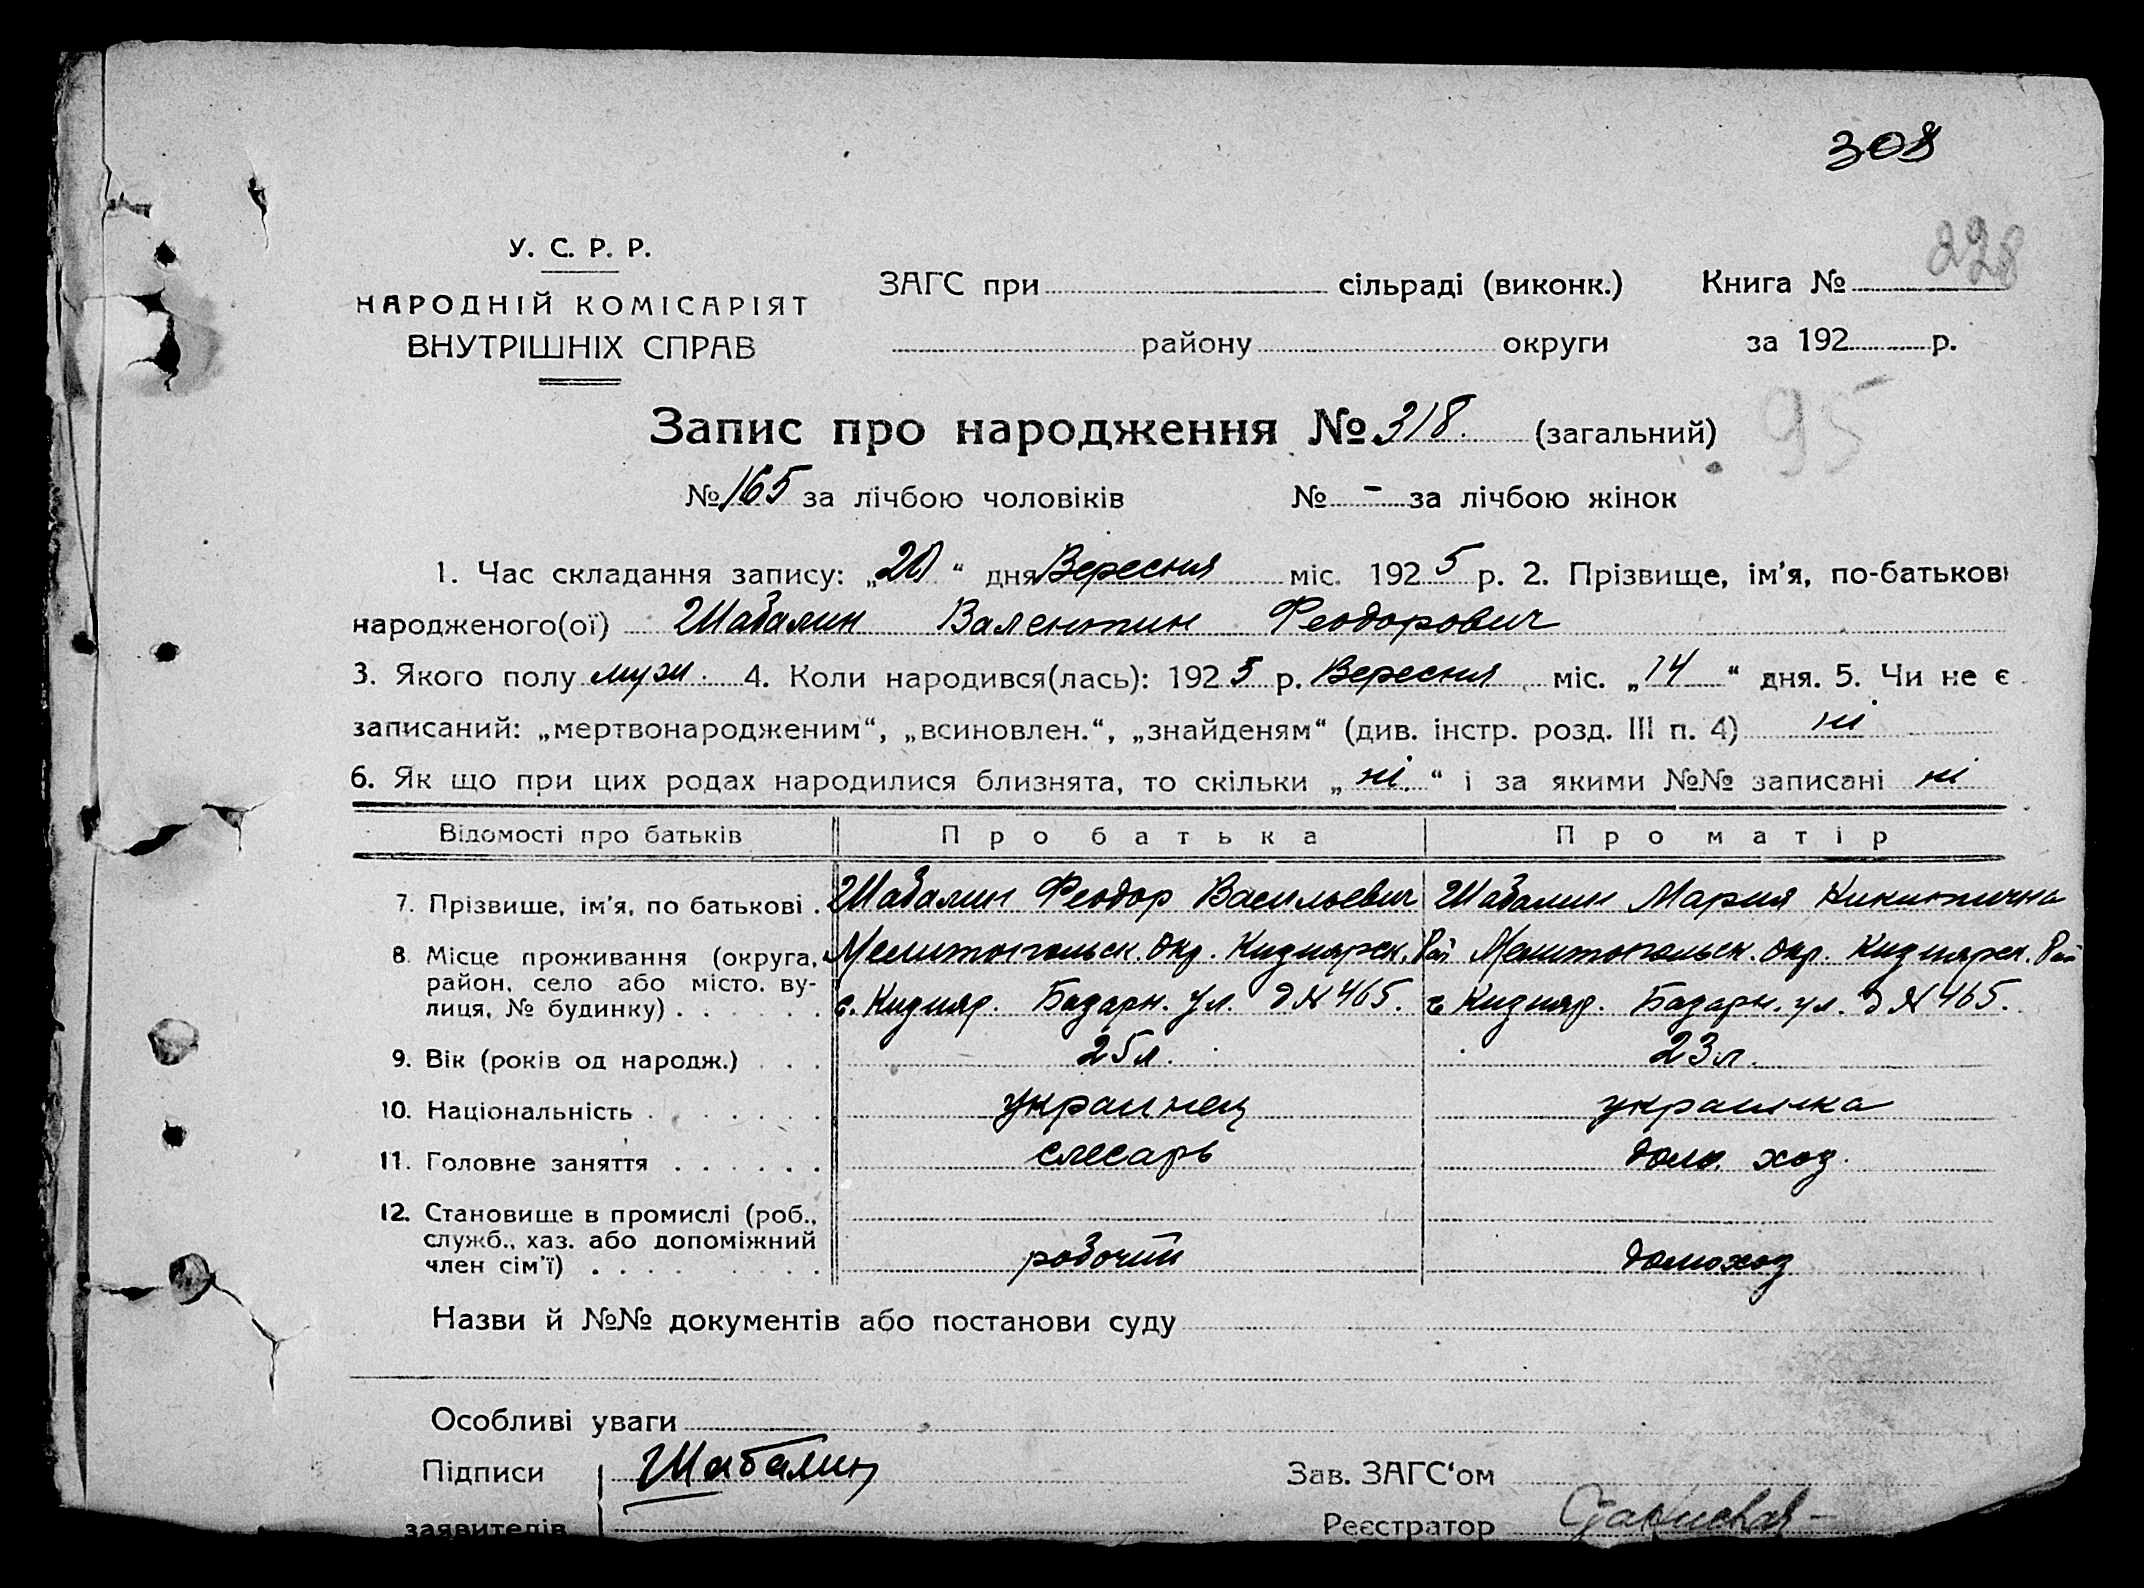 308
У. С. Р. Р.
НАРОДНІЙ КОМІСАРІЯТ
ВНУТРІШНІХ СПРАВ
ЗАГС при сільраді (виконк.) Книга № 228
району округи за 192 р.
95
Запис про народження № 318. (загальний)
№ 165 за лічбою чоловіків № - за лічбою жінок
1. Час складання запису: „20“ дня Вересня міс. 1925 р. 2. Прізвище, ім'я, по-батькові
народженого(ої) Шабалин Валентин Феодорович
3. Якого полу муж. 4. Коли народився(лась): 1925 р. Вересня міс. „14“ дня. 5. Чи не є
записаний: „мертвонародженим“, „всиновлен.“, „знайденям“ (див. інстр. розд. III п. 4) ні
6. Як що при цих родах народилися близнята, то скільки „ні.“ і за якими №№ записані ні
Відомості про батьків Про батька Про матір
7. Прізвище, ім'я, по батькові . Шабалин Феодор Васильевич Шабалин Мария Никитична
8. Місце проживання (округа, район, село або місто, вулиця, № будинку) . Мелитопольск. Окр. Кизиярск. Рай Мелитопольск. Окр. Кизиярск. Рай
с. Кизияр. Базарн. ул. д № 465. с Кизияр. Базарн. ул. д № 465.
9. Вік (років од народж.) . . . 25 л. 23 л.
10. Національність . украинец украинка
11. Головне заняття . . . . . . слесарь дом. хоз.
12. Становище в промислі (роб., служб., хаз. або допоміжний член сім'ї) . рабочий домохоз
Назви й №№ документів або постанови суду
Особливі уваги
Підписи Шабалин Зав. ЗАГС'ом
заявителів Реєстратор